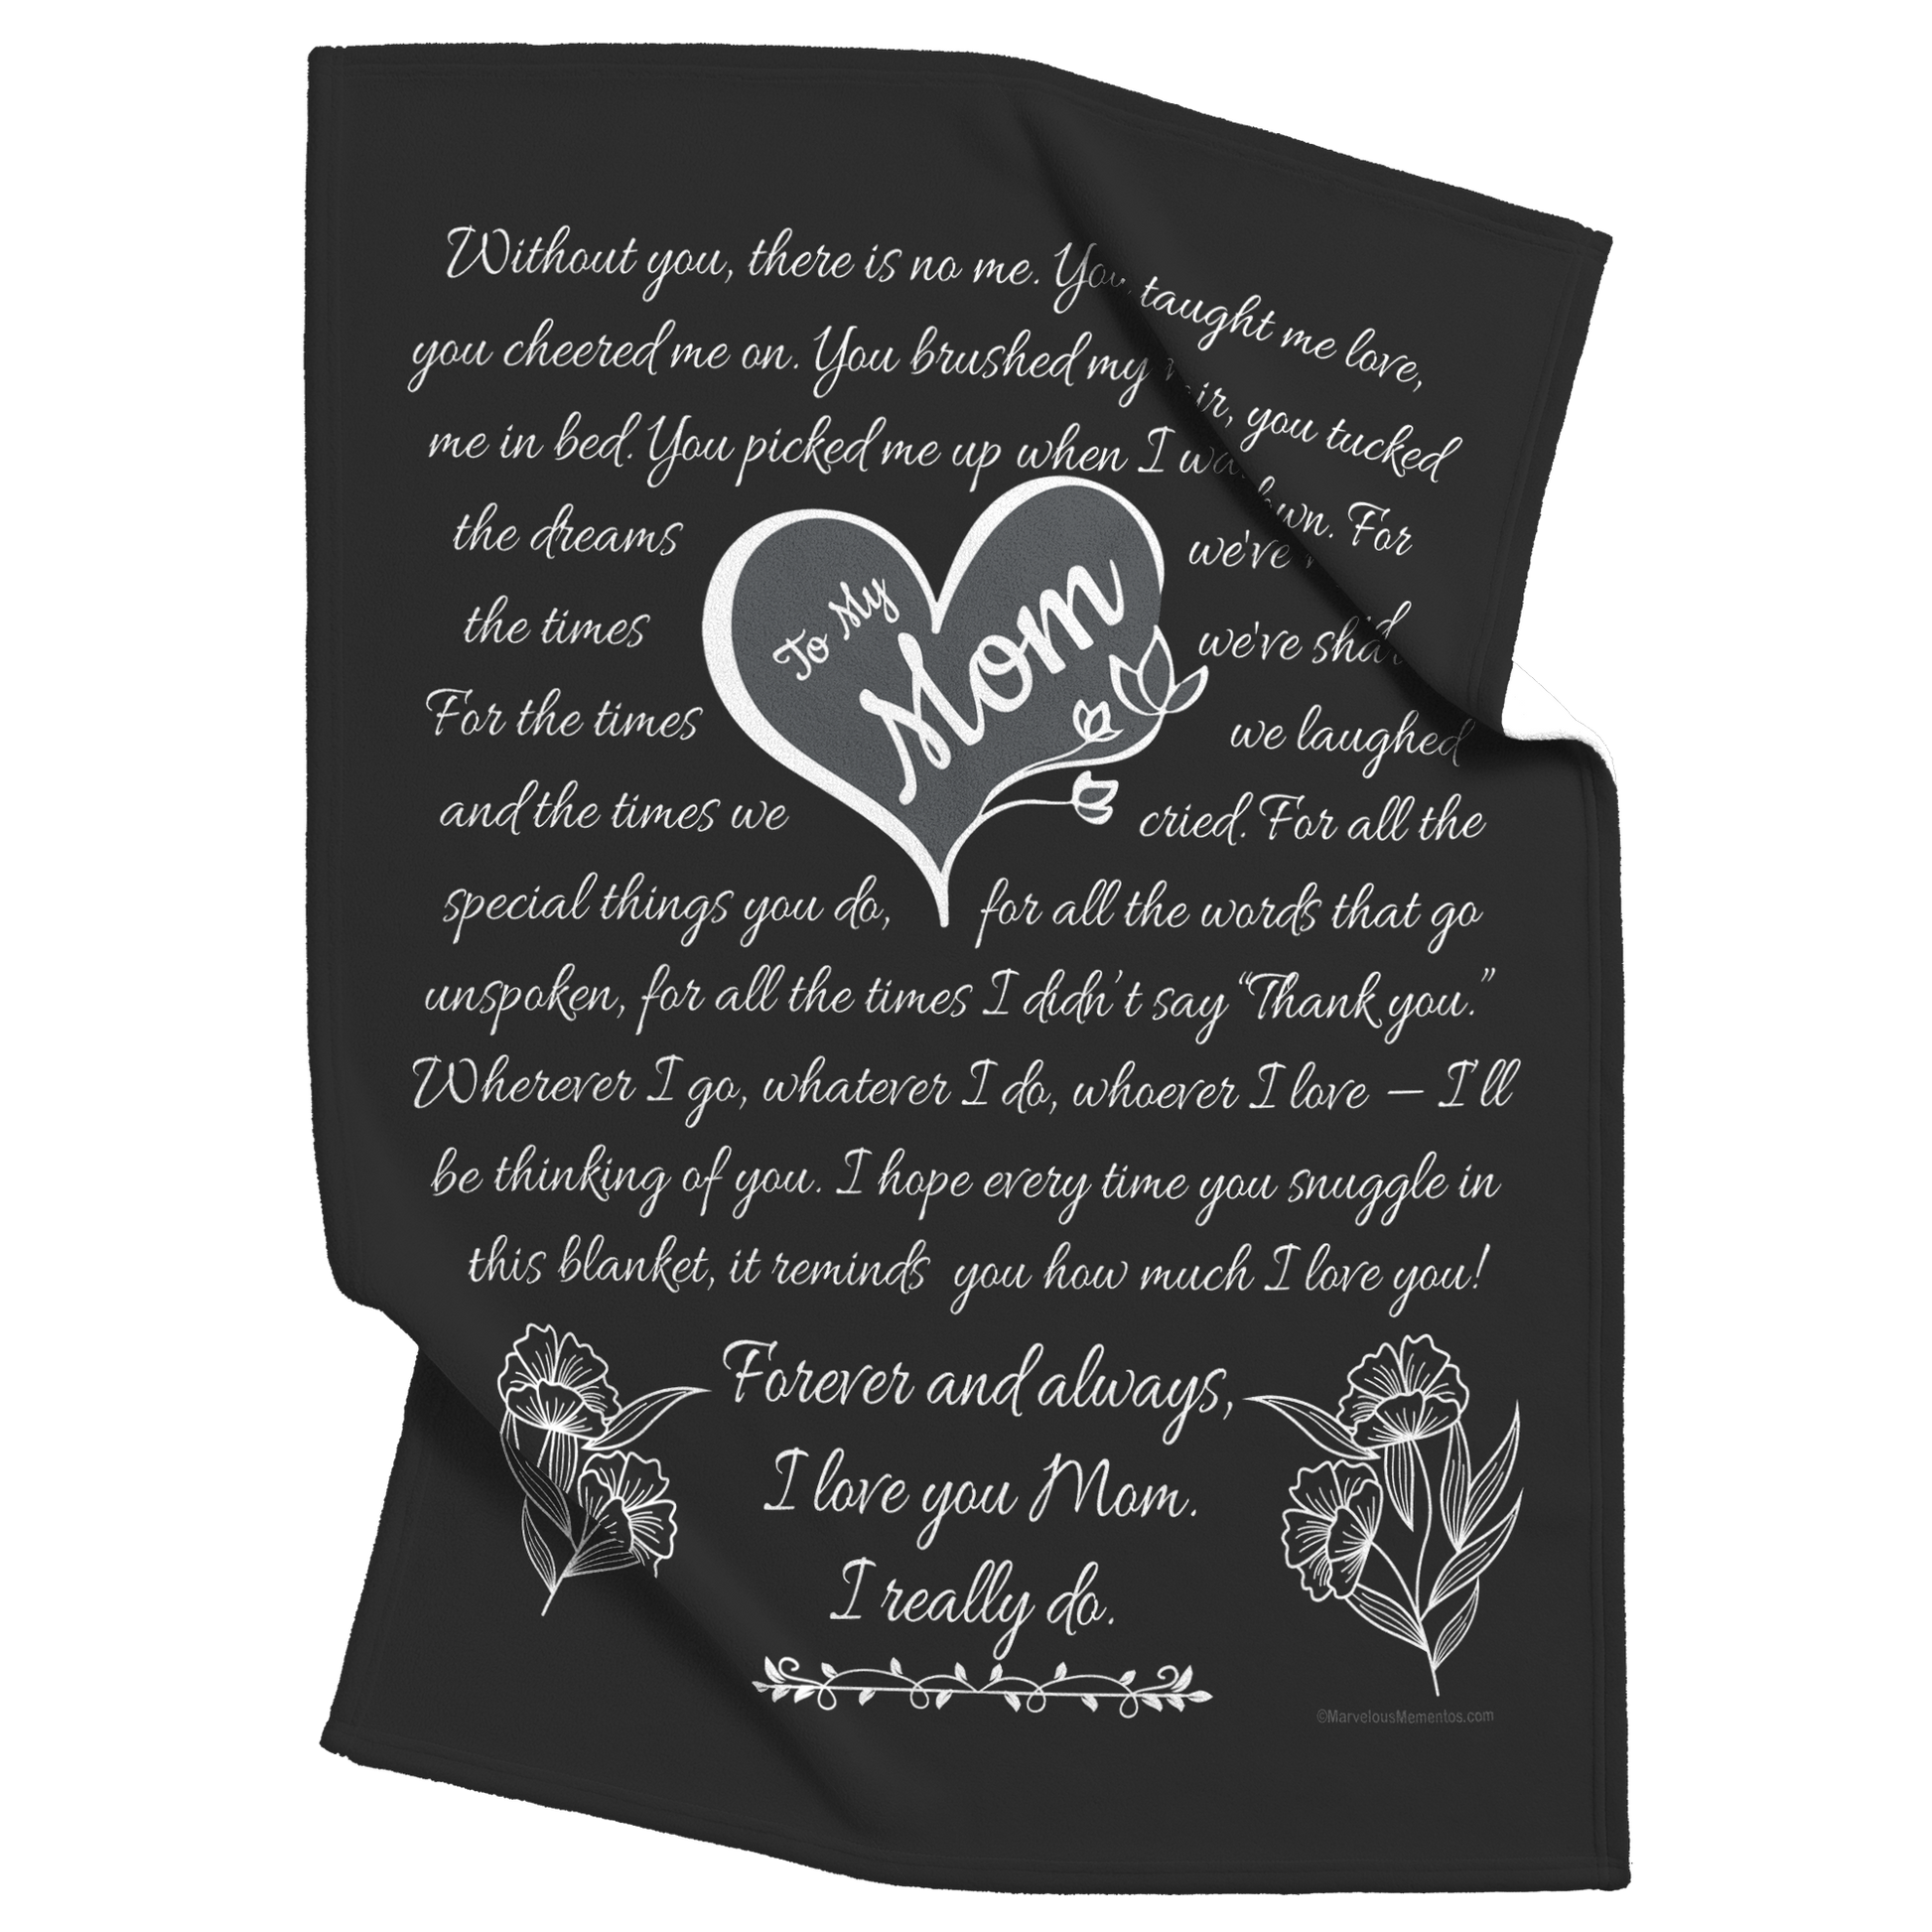 Without you, there is no me. You taught me love,
you cheered me on. You brushed my you tucked
me in bed. You picked me up when I For
the dreams we've
the times we've
For the times we laughed
and the times we cried. For all the
special things you do, for all the words that go
unspoken, for all the times I didn't say “Thank you.”
Wherever I go, whatever I do, whoever I love – I'll
be thinking of you. I hope every time you snuggle in
this blanket, it reminds you how much I love you!
To My
Mom
Forever and always,
I love you Mom.
I really do.
©MarvelousMementos.com